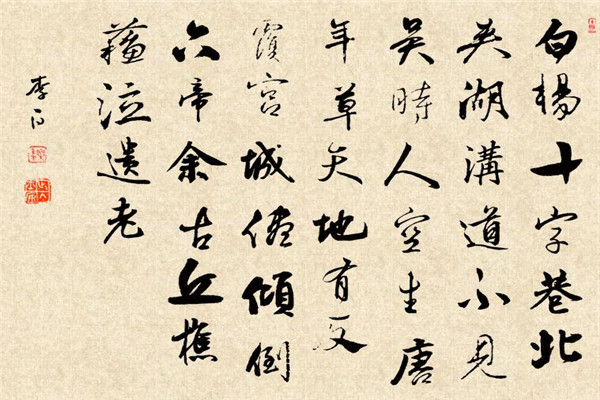 白楊十字巷北
夾湖溝道不見
吳時人空生唐
年草天地有反
覆宮城儘傾倒
六帝余古丘樵
蘓泣遺老
李白